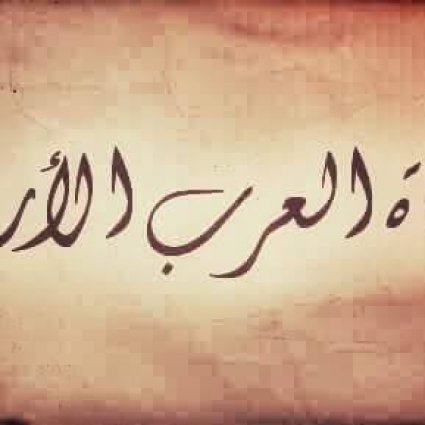 ة العرب الأر